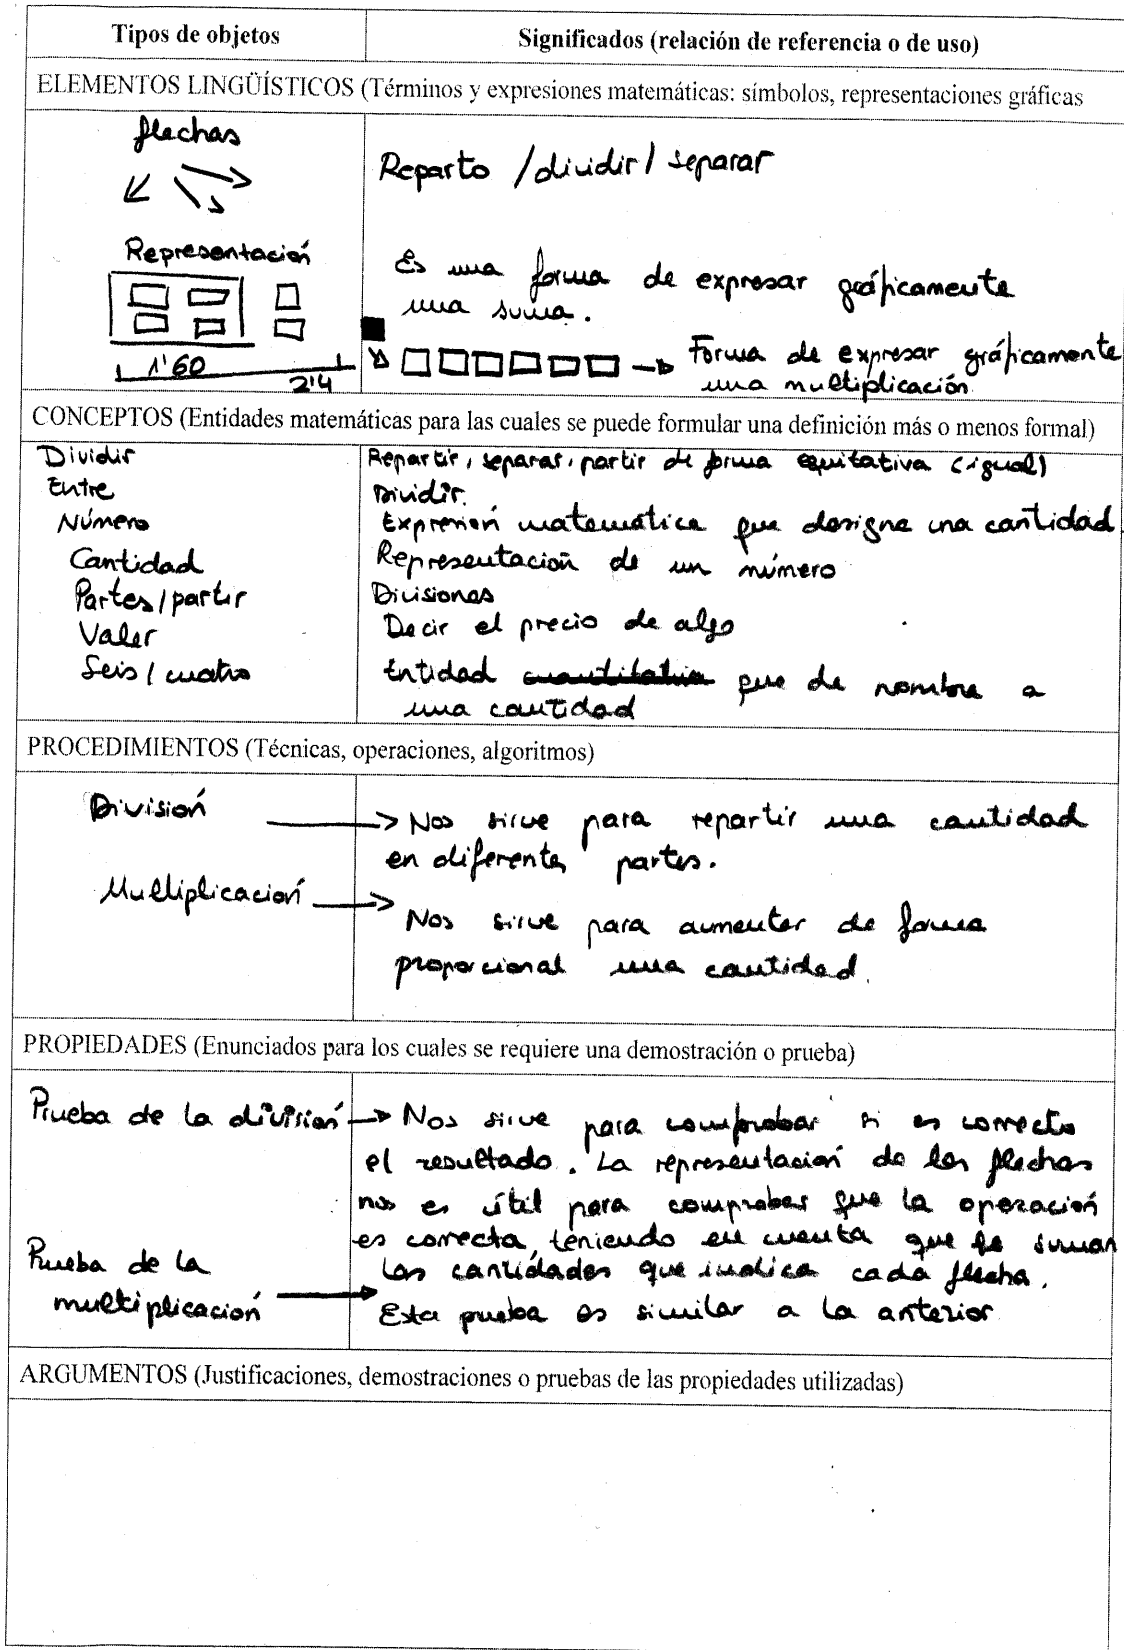 Tipos de objetos
Significados (relación de referencia o de uso)
ELEMENTOS LINGÜÍSTICOS (Términos y expresiones matemáticas: símbolos, representaciones gráficas
flechas
Reparto / dividir / separar
Representación
1'60
2'4
Es una forma de expresar gráficamente
una suma.
Forma de expresar gráficamente
una multiplicación
CONCEPTOS (Entidades matemáticas para las cuales se puede formular una definición más o menos formal)
Dividir
Repartir, separar, partir de forma equitativa (igual)
Entre
Dividir.
Número
Expresión matemática que designe una cantidad
Cantidad
Representación de un número
Partes / partir
Divisiones
Valer
Decir el precio de algo
Seis / cuatro
Entidad cuantitativa que da nombre a
una cantidad
PROCEDIMIENTOS (Técnicas, operaciones, algoritmos)
División
Nos sirve para repartir una cantidad
en diferentes partes.
Multiplicación
Nos sirve para aumentar de forma
proporcional una cantidad.
PROPIEDADES (Enunciados para los cuales se requiere una demostración o prueba)
Prueba de la división
Nos sirve para comprobar si es correcto
el resultado. La representación de las flechas
nos es útil para comprobar que la operación
es correcta, teniendo en cuenta que se suman
las cantidades que indica cada flecha.
Prueba de la
multiplicación
Esta prueba es similar a la anterior
ARGUMENTOS (Justificaciones, demostraciones o pruebas de las propiedades utilizadas)